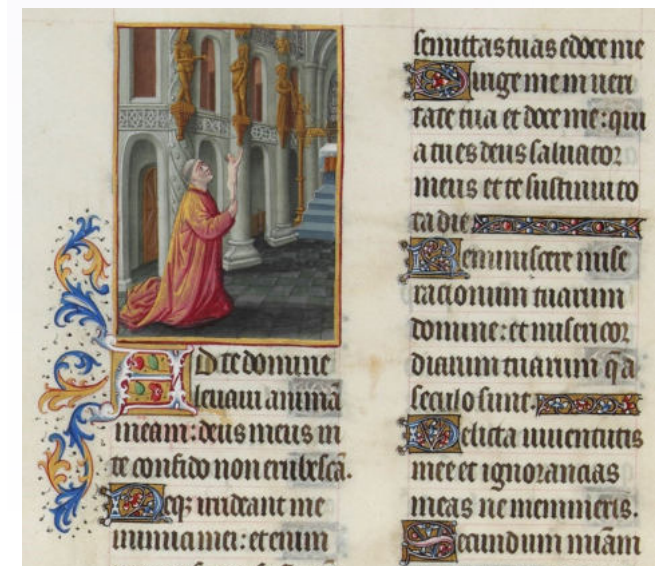 Ad te domine
leuaui animā
meam: deus meus in
te confido non erubescā.
Neqꝫ irrideant me
inimici mei: et enim
semittas tuas edoce me
Dirige me in ueri
tate tua et doce me: qui
a tu es deus saluator
meus et te sustinui to
ta die
Reminiscere mise
racionum tuarum
domine: et misericor
diarum tuarum q̄ a
seculo sunt.
Delicta iuuentutis
mee et ignorancias
meas ne memineris.
Secundum miā̄m